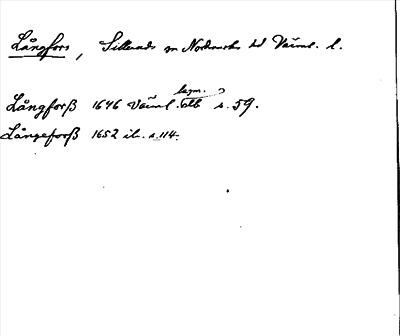 Långfors, Silleruds sn Nordmarks hd Värml. l.
Långforß 1646 Värml. lagm. dlb s. 59.
Långeforß 1652 ib. s. 114.